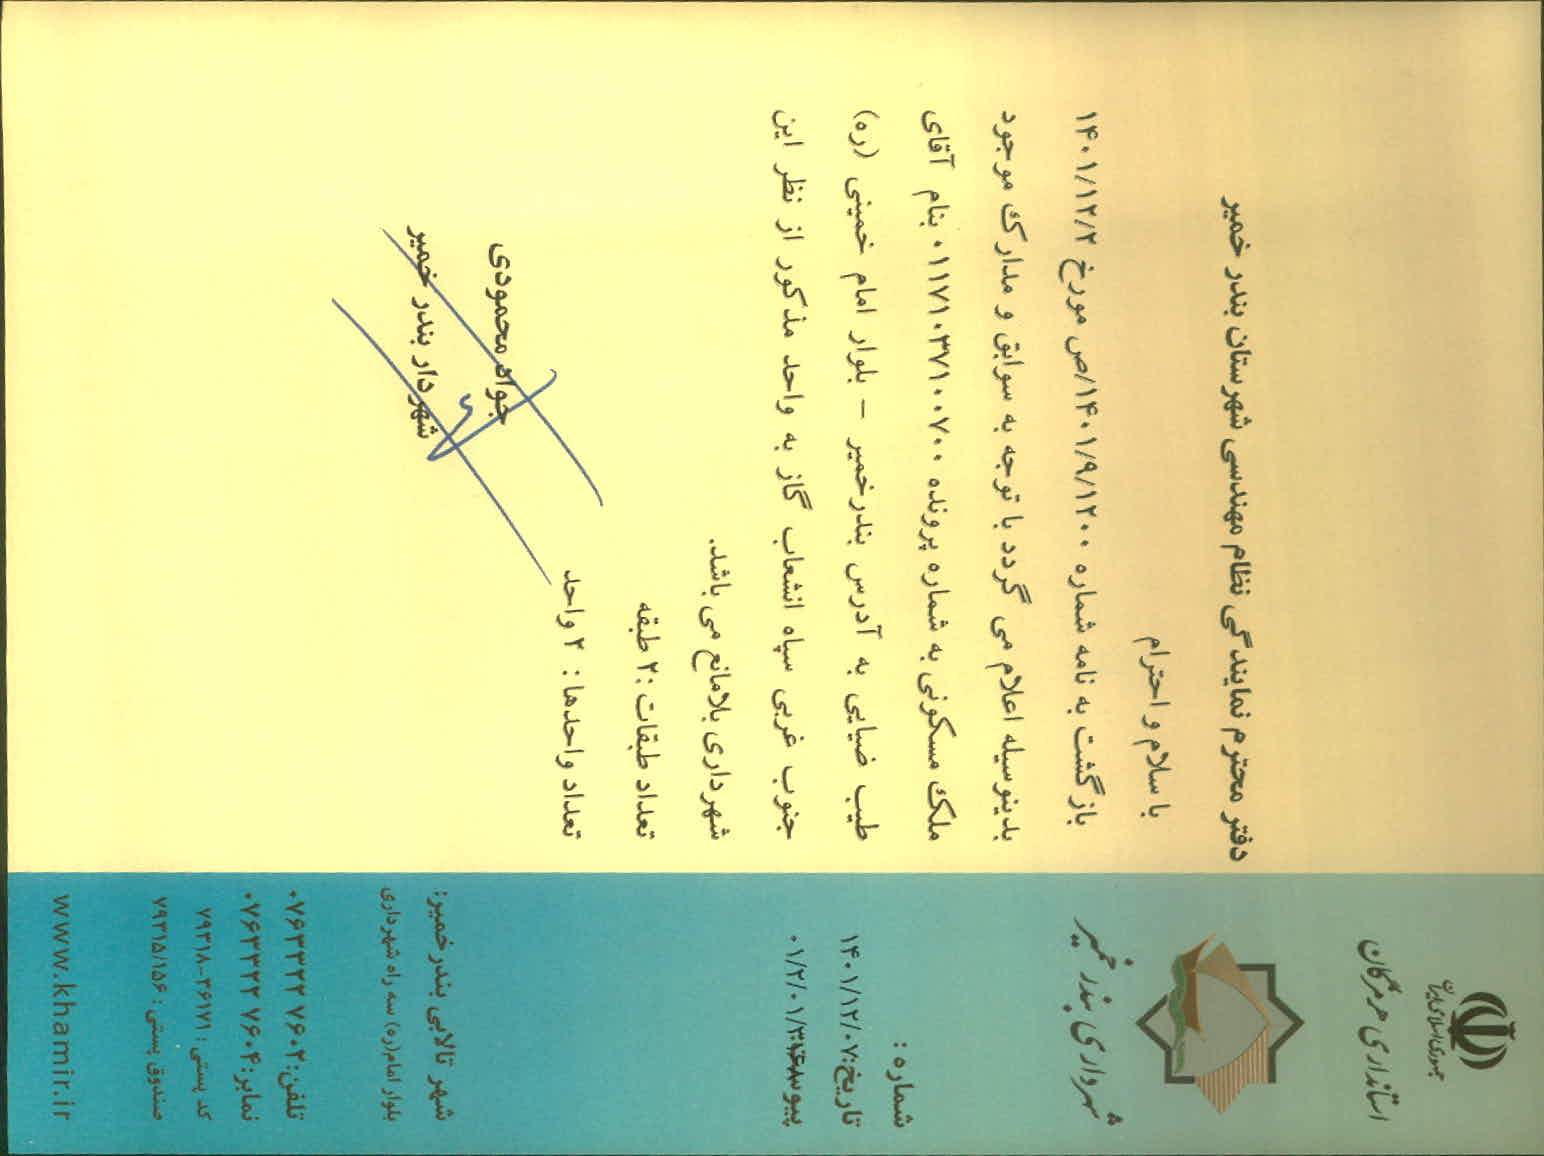 جمهوری اسلامی ایران
استانداری هرمزگان
شهرداری بندر خمیر
شماره :
تاریخ: ۱۴۰۱/۱۲/۰۷
پیوست:
دفتر محترم نمایندگی نظام مهندسی شهرستان بندر خمیر
با سلام و احترام
بازگشت به نامه شماره ۱۴۰۱/۹/۱۲۰۰/ص مورخ ۱۴۰۱/۱۲/۲
بدینوسیله اعلام می گردد با توجه به سوابق و مدارک موجود
ملک مسکونی به شماره پرونده ۰۱۱۷۱۰۳۷۱۰۰۷۰۰ بنام آقای
طیب ضیایی به آدرس بندرخمیر – بلوار امام خمینی (ره)
جنوب غربی سپاه انشعاب گاز به واحد مذکور از نظر این
شهرداری بلامانع می باشد.
تعداد طبقات :۲ طبقه
تعداد واحدها : ۲ واحد
جواد محمودی
شهردار بندر خمیر
شهر تالابی بندرخمیر:
بلوار امام(ره) سه راه شهرداری
تلفن: ۰۷۶۳۳۲۲ ۷۶۰۲
نمابر: ۰۷۶۳۳۲۲ ۷۶۰۴
کد پستی : ۷۹۳۱۸-۳۶۱۷۱
صندوق پستی : ۷۹۳۱۵/۱۵۶
www.khamir.ir